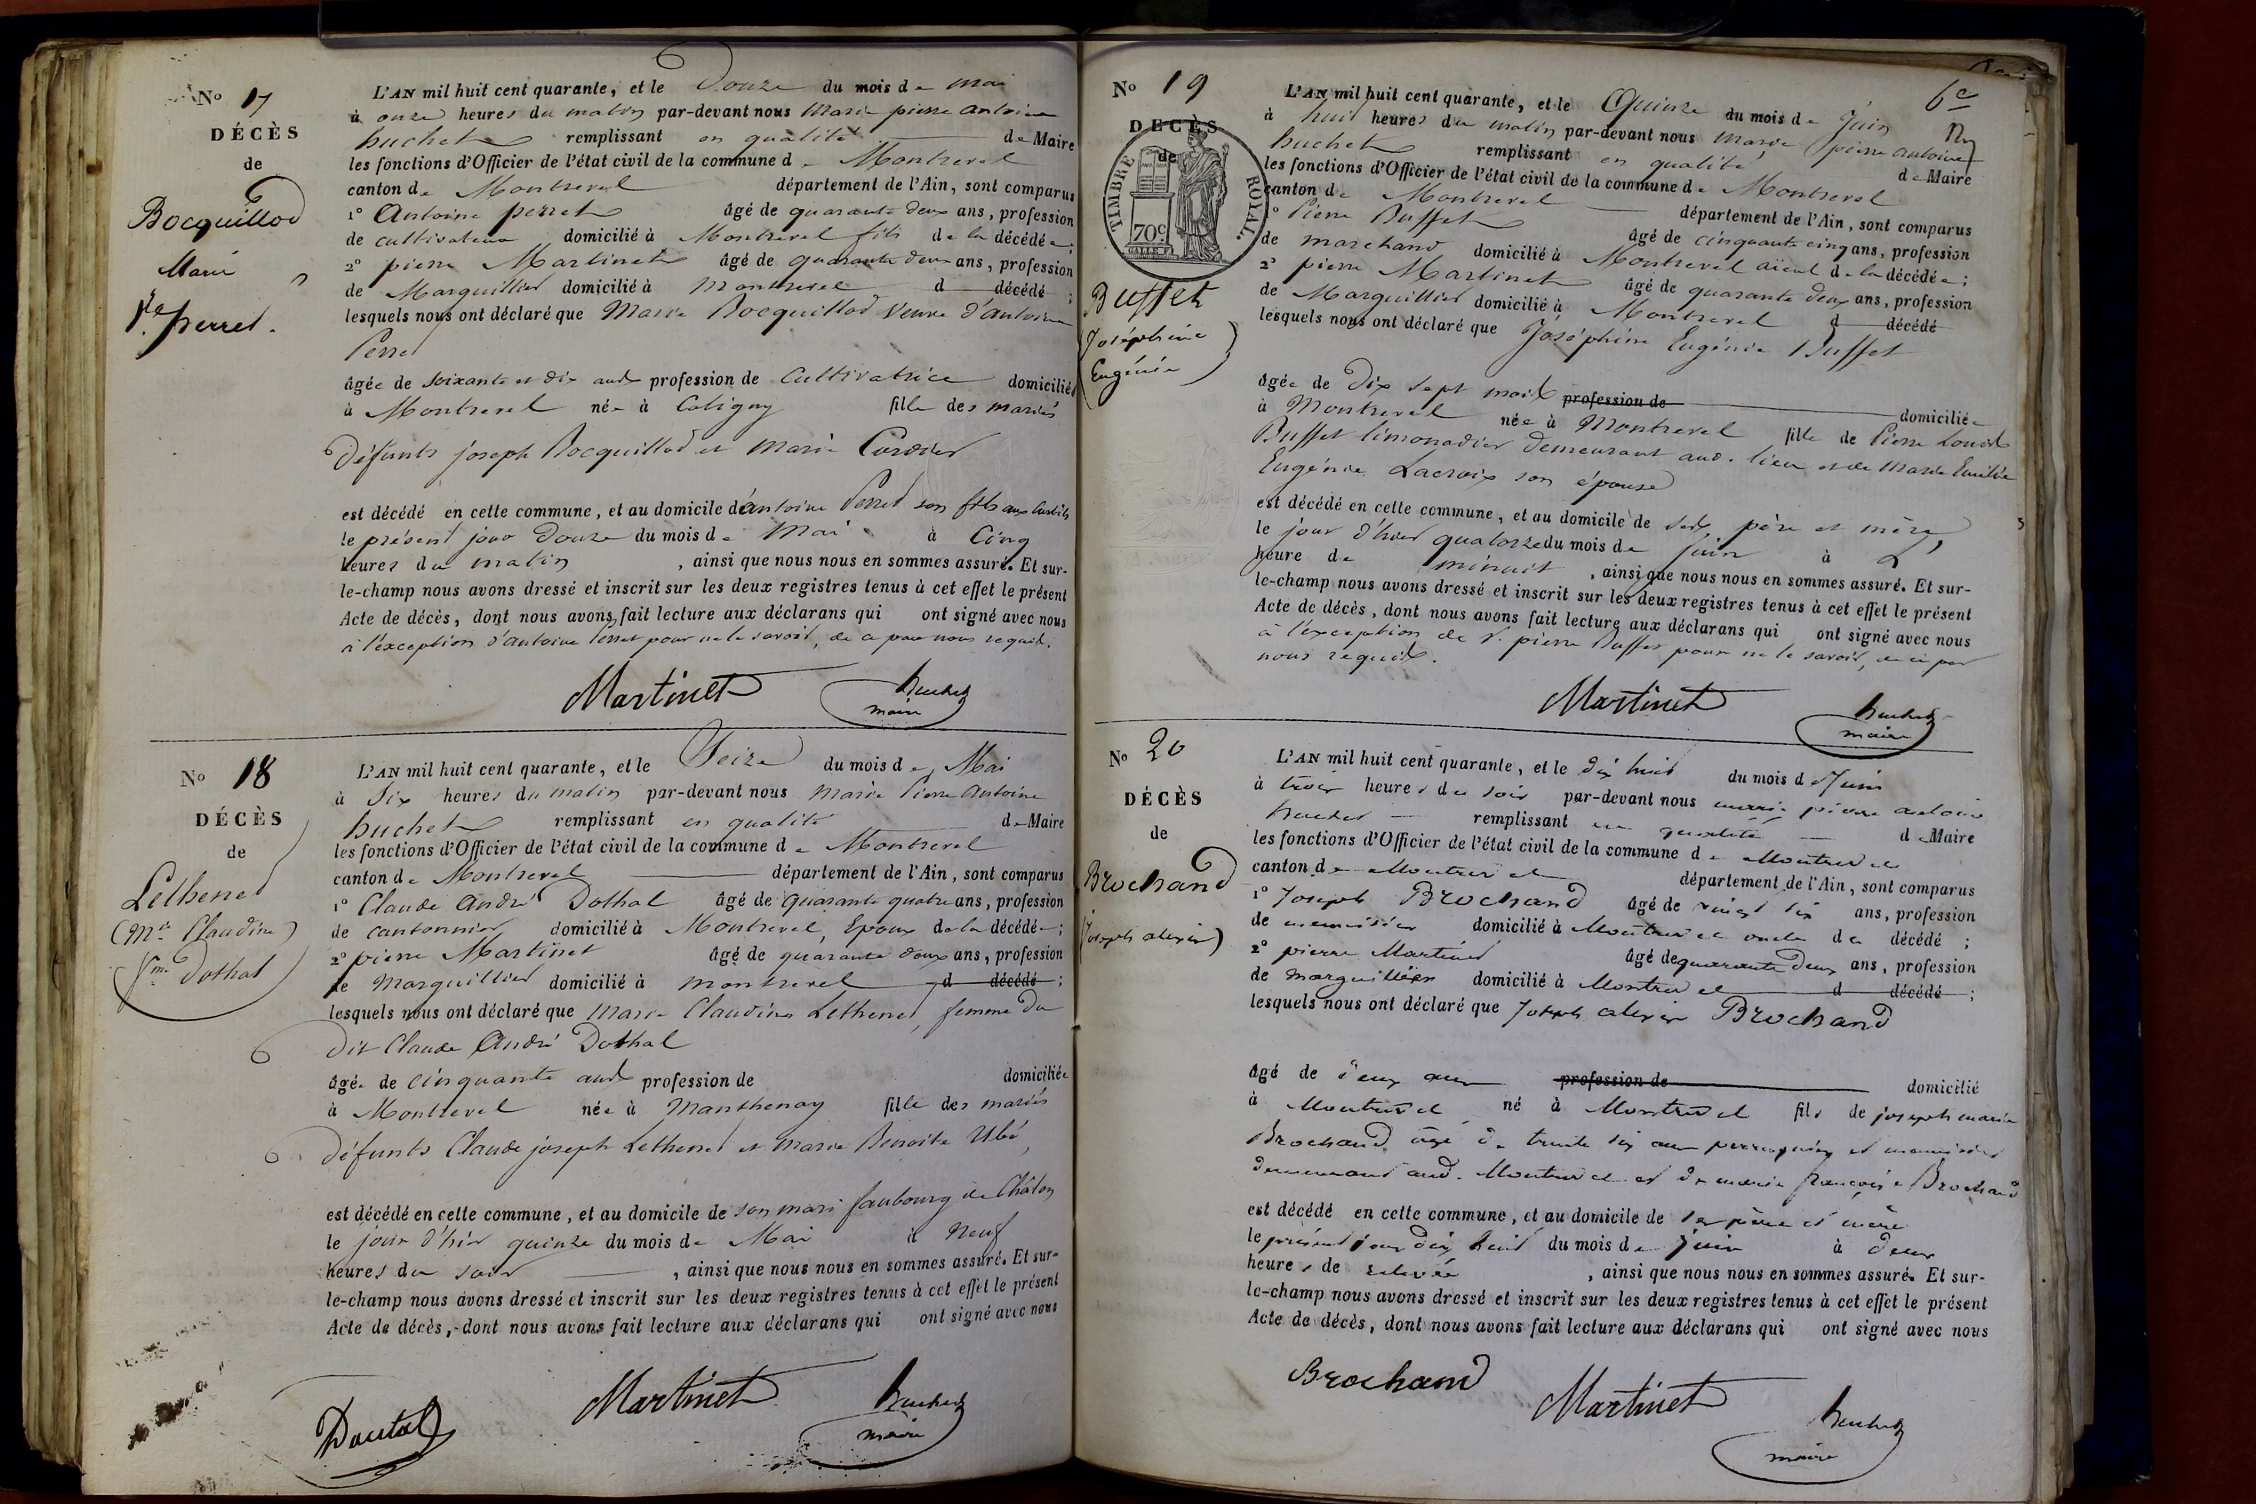 No 17
DÉCÈS
de
Bocquillod
Marie
Ve perret.
L'AN mil huit cent quarante, et le Douze du mois de mai
à onze heures du matin par-devant nous Marie pierre antoine
huchet remplissant en qualité de Maire
les fonctions d'Officier de l'état civil de la commune de Montrevel
canton de Montrevel département de l'Ain, sont comparus
1° Antoine perret âgé de quarante deux ans, profession
de cultivateur domicilié à Montrevel fils de la décédée;
2° pierre Martinet âgé de quarante deux ans, profession
de Marguillier domicilié à Montrevel d décédé ;
lesquels nous ont déclaré que Marie Bocquillod Veuve d'antoine
Perret
âgée de soixante et dix ans profession de Cultivatrice domiciliée
à Montrevel née à Coligny fille des mariés
défunts joseph Bocquillod et Marie Cordier
est décédé en cette commune, et au domicile d'antoine Perret son fils aux
le présent jour Douze du mois de Mai à Cinq
heures du matin , ainsi que nous nous en sommes assuré. Et sur-
le-champ nous avons dressé et inscrit sur les deux registres tenus à cet effet le présent
Acte de décès, dont nous avons fait lecture aux déclarans qui ont signé avec nous
à l'exception d'antoine Perret pour ne le savoir, de ce par nous requis.
Martinet huchet
maire
No 18
DÉCÈS
de
Lethenet
(Mie Claudine)
fme Dothal
L'AN mil huit cent quarante, et le Seize du mois de Mai
à Six heures du matin par-devant nous Marie Pierre Antoine
huchet remplissant en qualité de Maire
les fonctions d'Officier de l'état civil de la commune de Montrevel
canton de Montrevel département de l'Ain, sont comparus
1° Claude André Dothal âgé de quarante quatre ans, profession
de cantonnier domicilié à Montrevel, Epoux de la décédée;
2° pierre Martinet âgé de quarante deux ans, profession
de Marguillier domicilié à Montrevel d décédé ;
lesquels nous ont déclaré que Marie Claudine Lethenet, femme du
dit Claude André Dothal
âgée de cinquante ans profession de domiciliée
à Montrevel née à Manthenay fille des mariés
défunts Claude joseph Lethenet et Marie Benoite Ubé,
est décédé en cette commune, et au domicile de son mari faubourg de Châlon
le jour d'hier quinze du mois de Mai à Neuf
heures du soir , ainsi que nous nous en sommes assuré. Et sur-
le-champ nous avons dressé et inscrit sur les deux registres tenus à cet effet le présent
Acte de décès, dont nous avons fait lecture aux déclarans qui ont signé avec nous
Doutal Martinet huchet
maire
6e
No 19
DÉCÈS
de
TIMBRE ROYAL.
70c
Buffet
(Joséphine
Eugénie)
L'AN mil huit cent quarante, et le Quinze du mois de Juin
à huit heures du matin par-devant nous Marie pierre antoine
huchet remplissant en qualité de Maire
les fonctions d'Officier de l'état civil de la commune de Montrevel
canton de Montrevel département de l'Ain, sont comparus
1° Pierre Buffet âgé de cinquante cinq ans, profession
de marchand domicilié à Montrevel aïeul de la décédée;
2° pierre Martinet âgé de quarante deux ans, profession
de Marguillier domicilié à Montrevel d décédé
lesquels nous ont déclaré que Joséphine Eugénie Buffet
âgée de dix sept mois profession de domiciliée
à Montrevel née à Montrevel fille de Pierre Louis
Buffet limonadier demeurant aud. lieu et de Marie Emilie
Eugénie Lacroix son épouse
est décédé en cette commune, et au domicile de ses père et mère,
le jour d'hier quatorze du mois de juin à
heure de minuit , ainsi que nous nous en sommes assuré. Et sur-
le-champ nous avons dressé et inscrit sur les deux registres tenus à cet effet le présent
Acte de décès, dont nous avons fait lecture aux déclarans qui ont signé avec nous
à l'exception de pierre Buffet pour ne le savoir, de ce par
nous requis.
Martinet huchet
maire
No 20
DÉCÈS
de
Brochand
(joseph alexis)
L'AN mil huit cent quarante, et le dix huit du mois de Juin
à trois heures du soir par-devant nous marie pierre antoine
huchet remplissant en qualité de Maire
les fonctions d'Officier de l'état civil de la commune de Montrevel
canton de Montrevel département de l'Ain, sont comparus
1° Joseph Brochand âgé de vingt six ans, profession
de menuisier domicilié à Montrevel oncle du décédé ;
2° pierre Martinet âgé de quarante deux ans, profession
de marguillier domicilié à Montrevel d décédé ;
lesquels nous ont déclaré que Joseph alexis Brochand
âgé de deux ans profession de domicilié
à Montrevel né à Montrevel fils de joseph marie
Brochand âgé de trente six ans perruquier et menuisier
demeurant aud. Montrevel et de marie françoise Brochand
est décédé en cette commune, et au domicile de ses père et mère
le présent jour dix huit du mois de juin à deux
heures de relevée , ainsi que nous nous en sommes assuré. Et sur-
le-champ nous avons dressé et inscrit sur les deux registres tenus à cet effet le présent
Acte de décès, dont nous avons fait lecture aux déclarans qui ont signé avec nous
Brochand Martinet huchet
maire